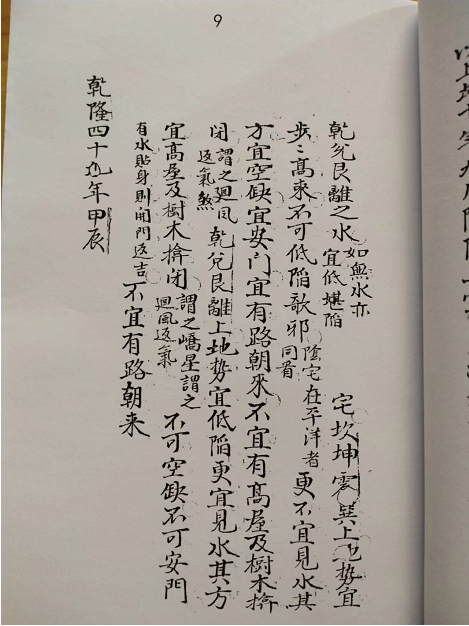 9
乾兌艮離之水如無水亦宜低堪陷　宅坎坤震巽上地勢宜
步〻高來不可低陷歌邪陰宅在平洋者同看更不宜見水其
方宜空缺宜安门宜有路朝來不宜有高屋及樹木擠
閉謂之廻風返氣煞乾兌艮離上地勢宜低陷更宜見水其方
宜高屋及樹木擠閉謂之嶠星謂之廻風返氣不可空缺不可安門
有水貼身則開門返吉不宜有路朝来
乾隆四十九年甲辰